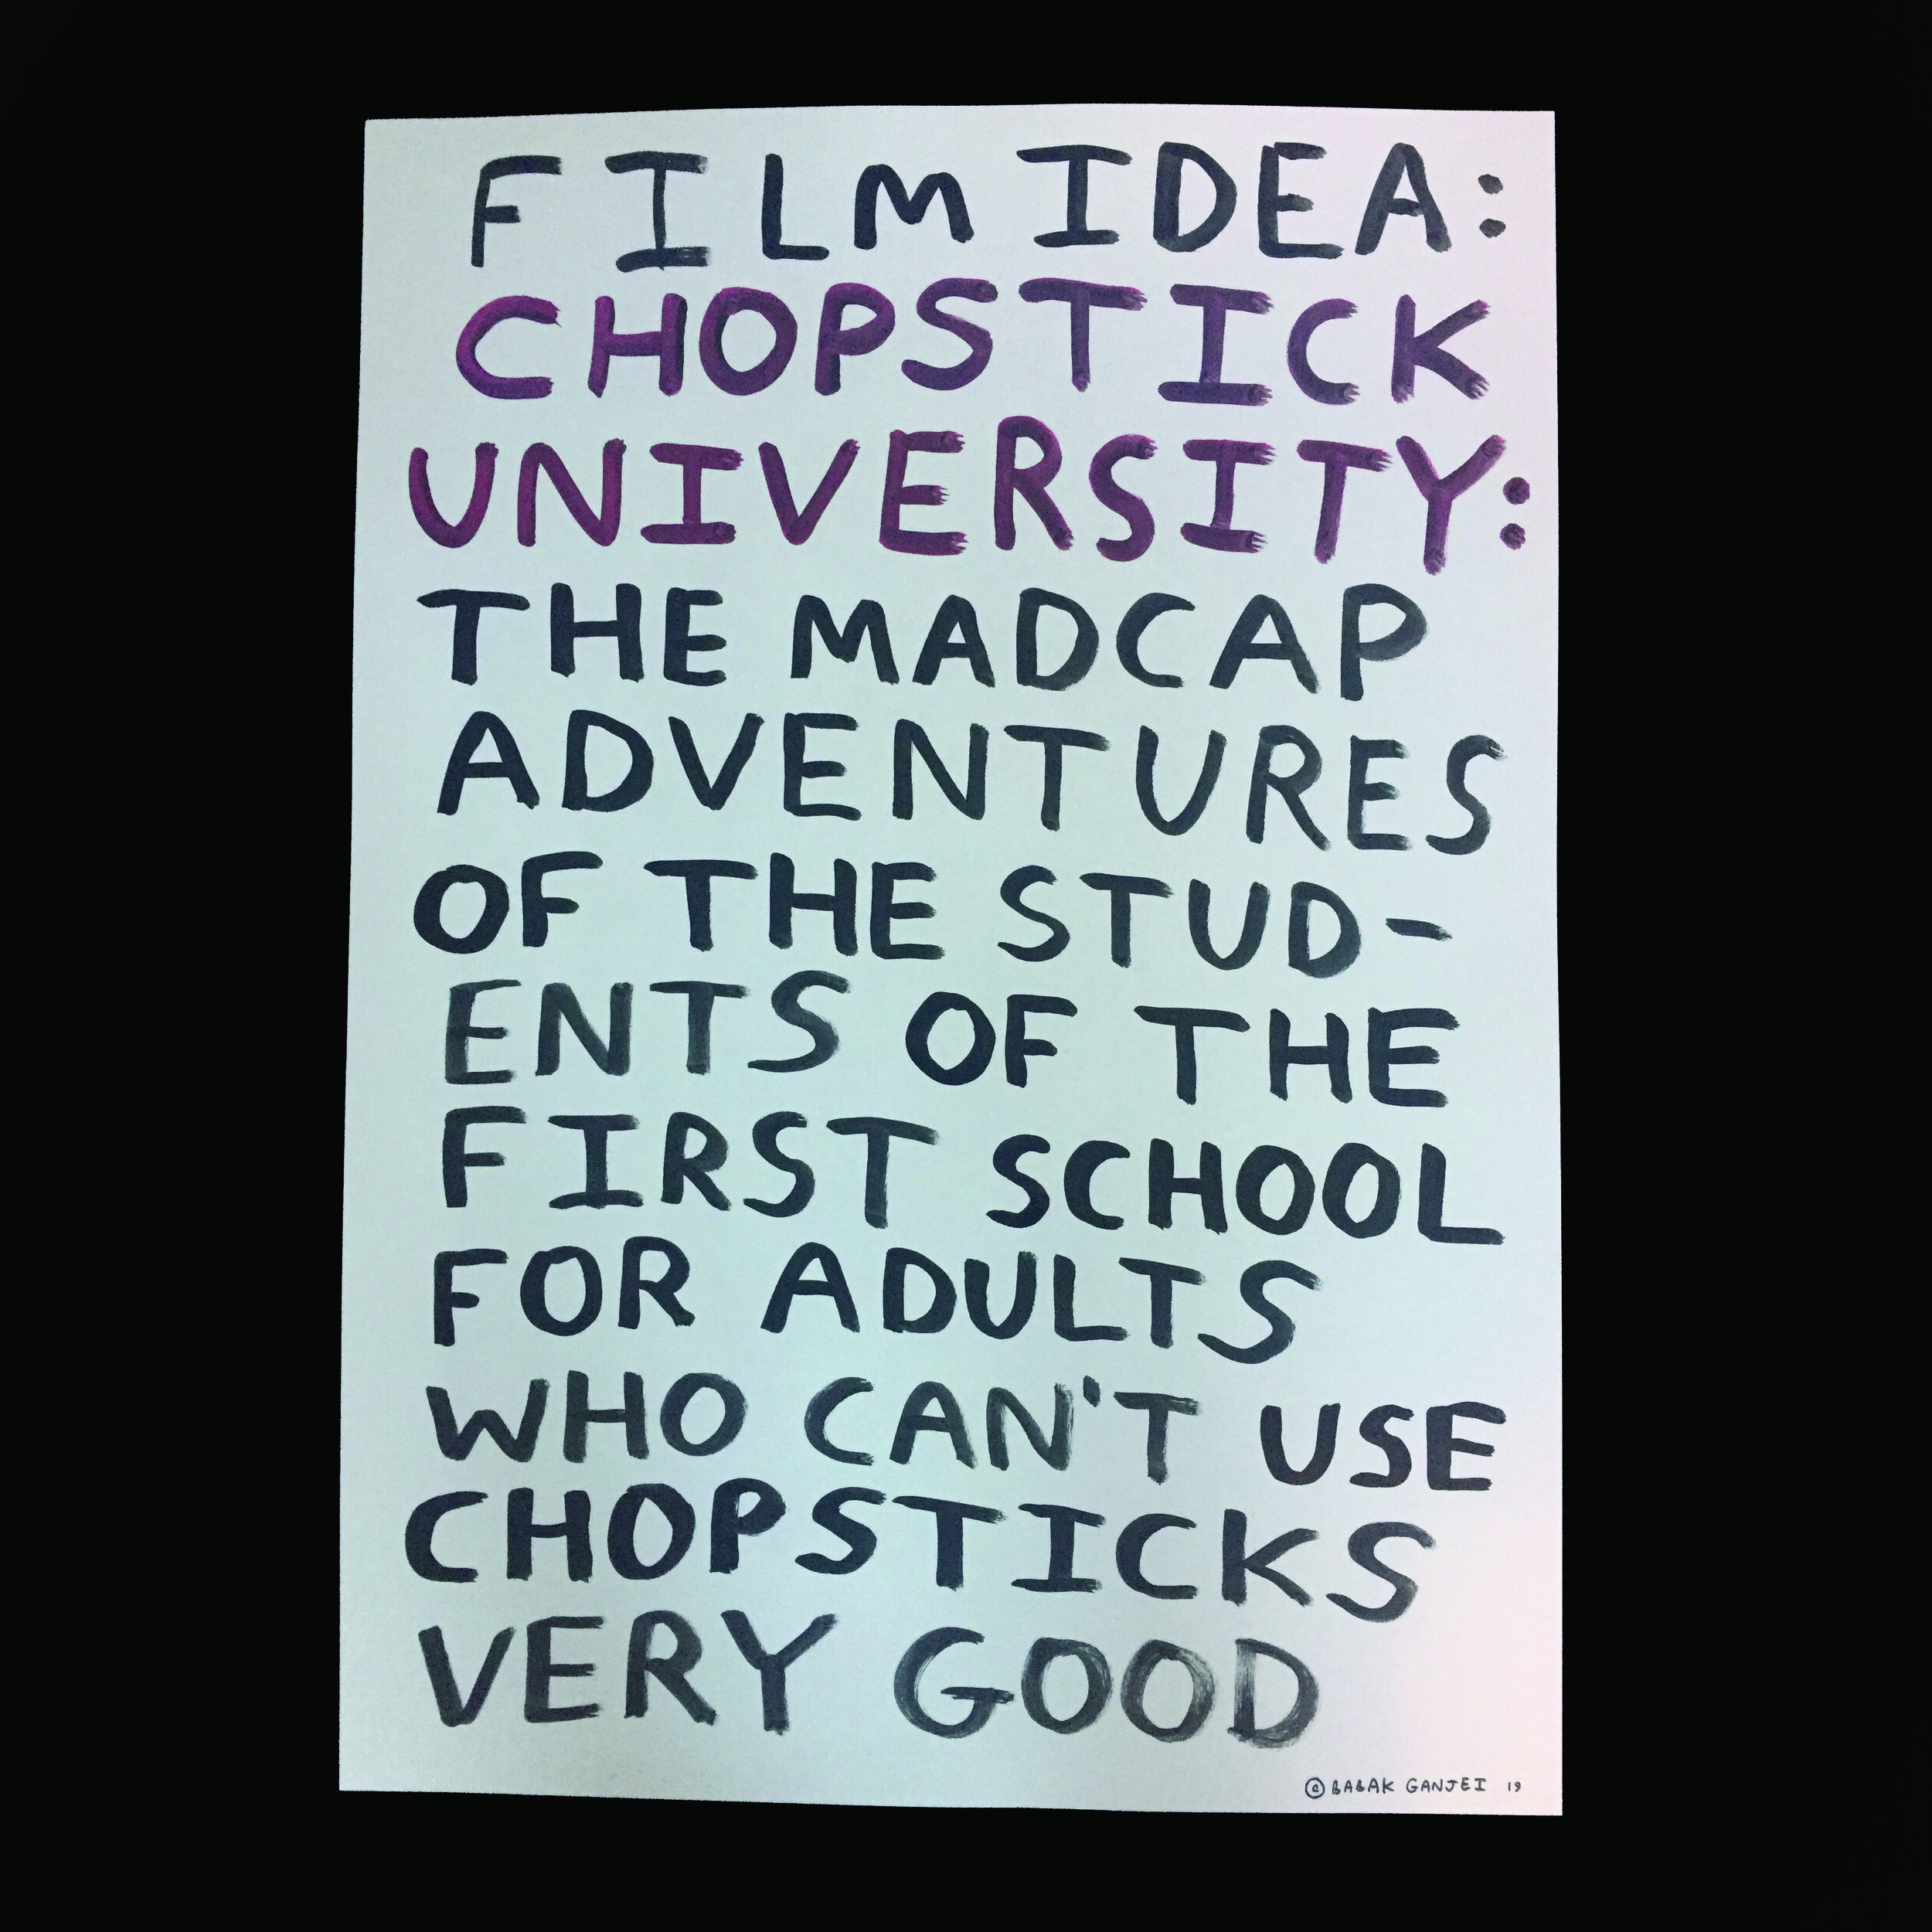 FILM IDEA:
CHOPSTICK
UNIVERSITY:
THE MADCAP
ADVENTURES
OF THE STUD-
ENTS OF THE
FIRST SCHOOL
FOR ADULTS
WHO CAN'T USE
CHOPSTICKS
VERY GOOD
© BABAK GANJEI 19